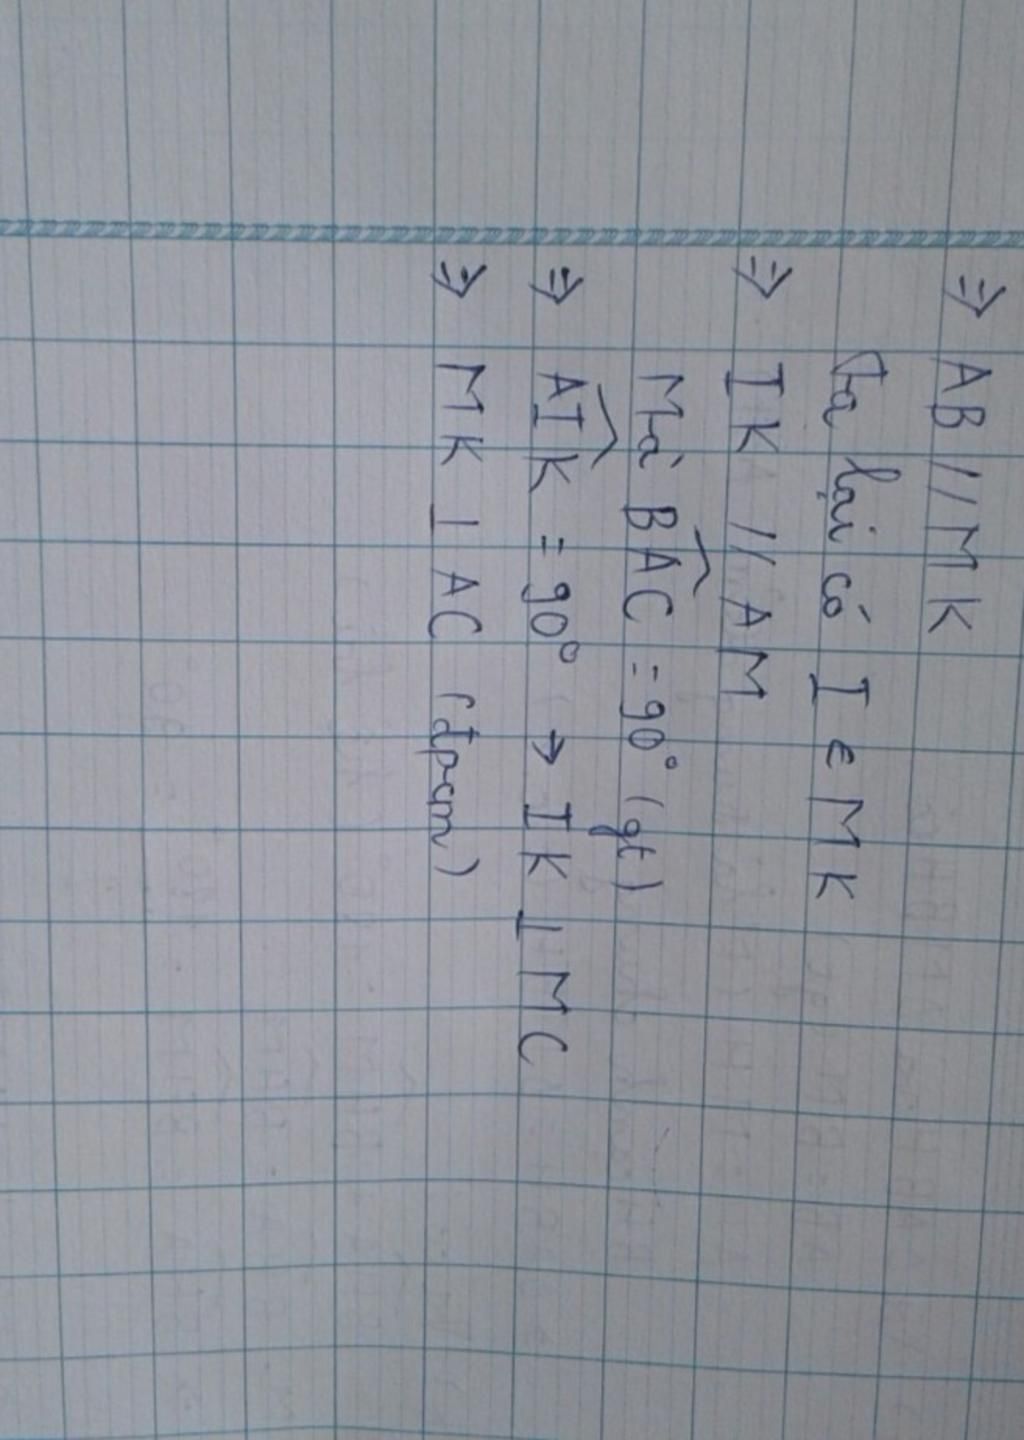 ⇒ AB // MK
Ta lại có I ∈ MK
⇒ IK // AM
Mà \widehat{BAC} = 90° (gt)
⇒ \widehat{AIK} = 90° → IK ⊥ MC
⇒ MK ⊥ AC (đpcm)